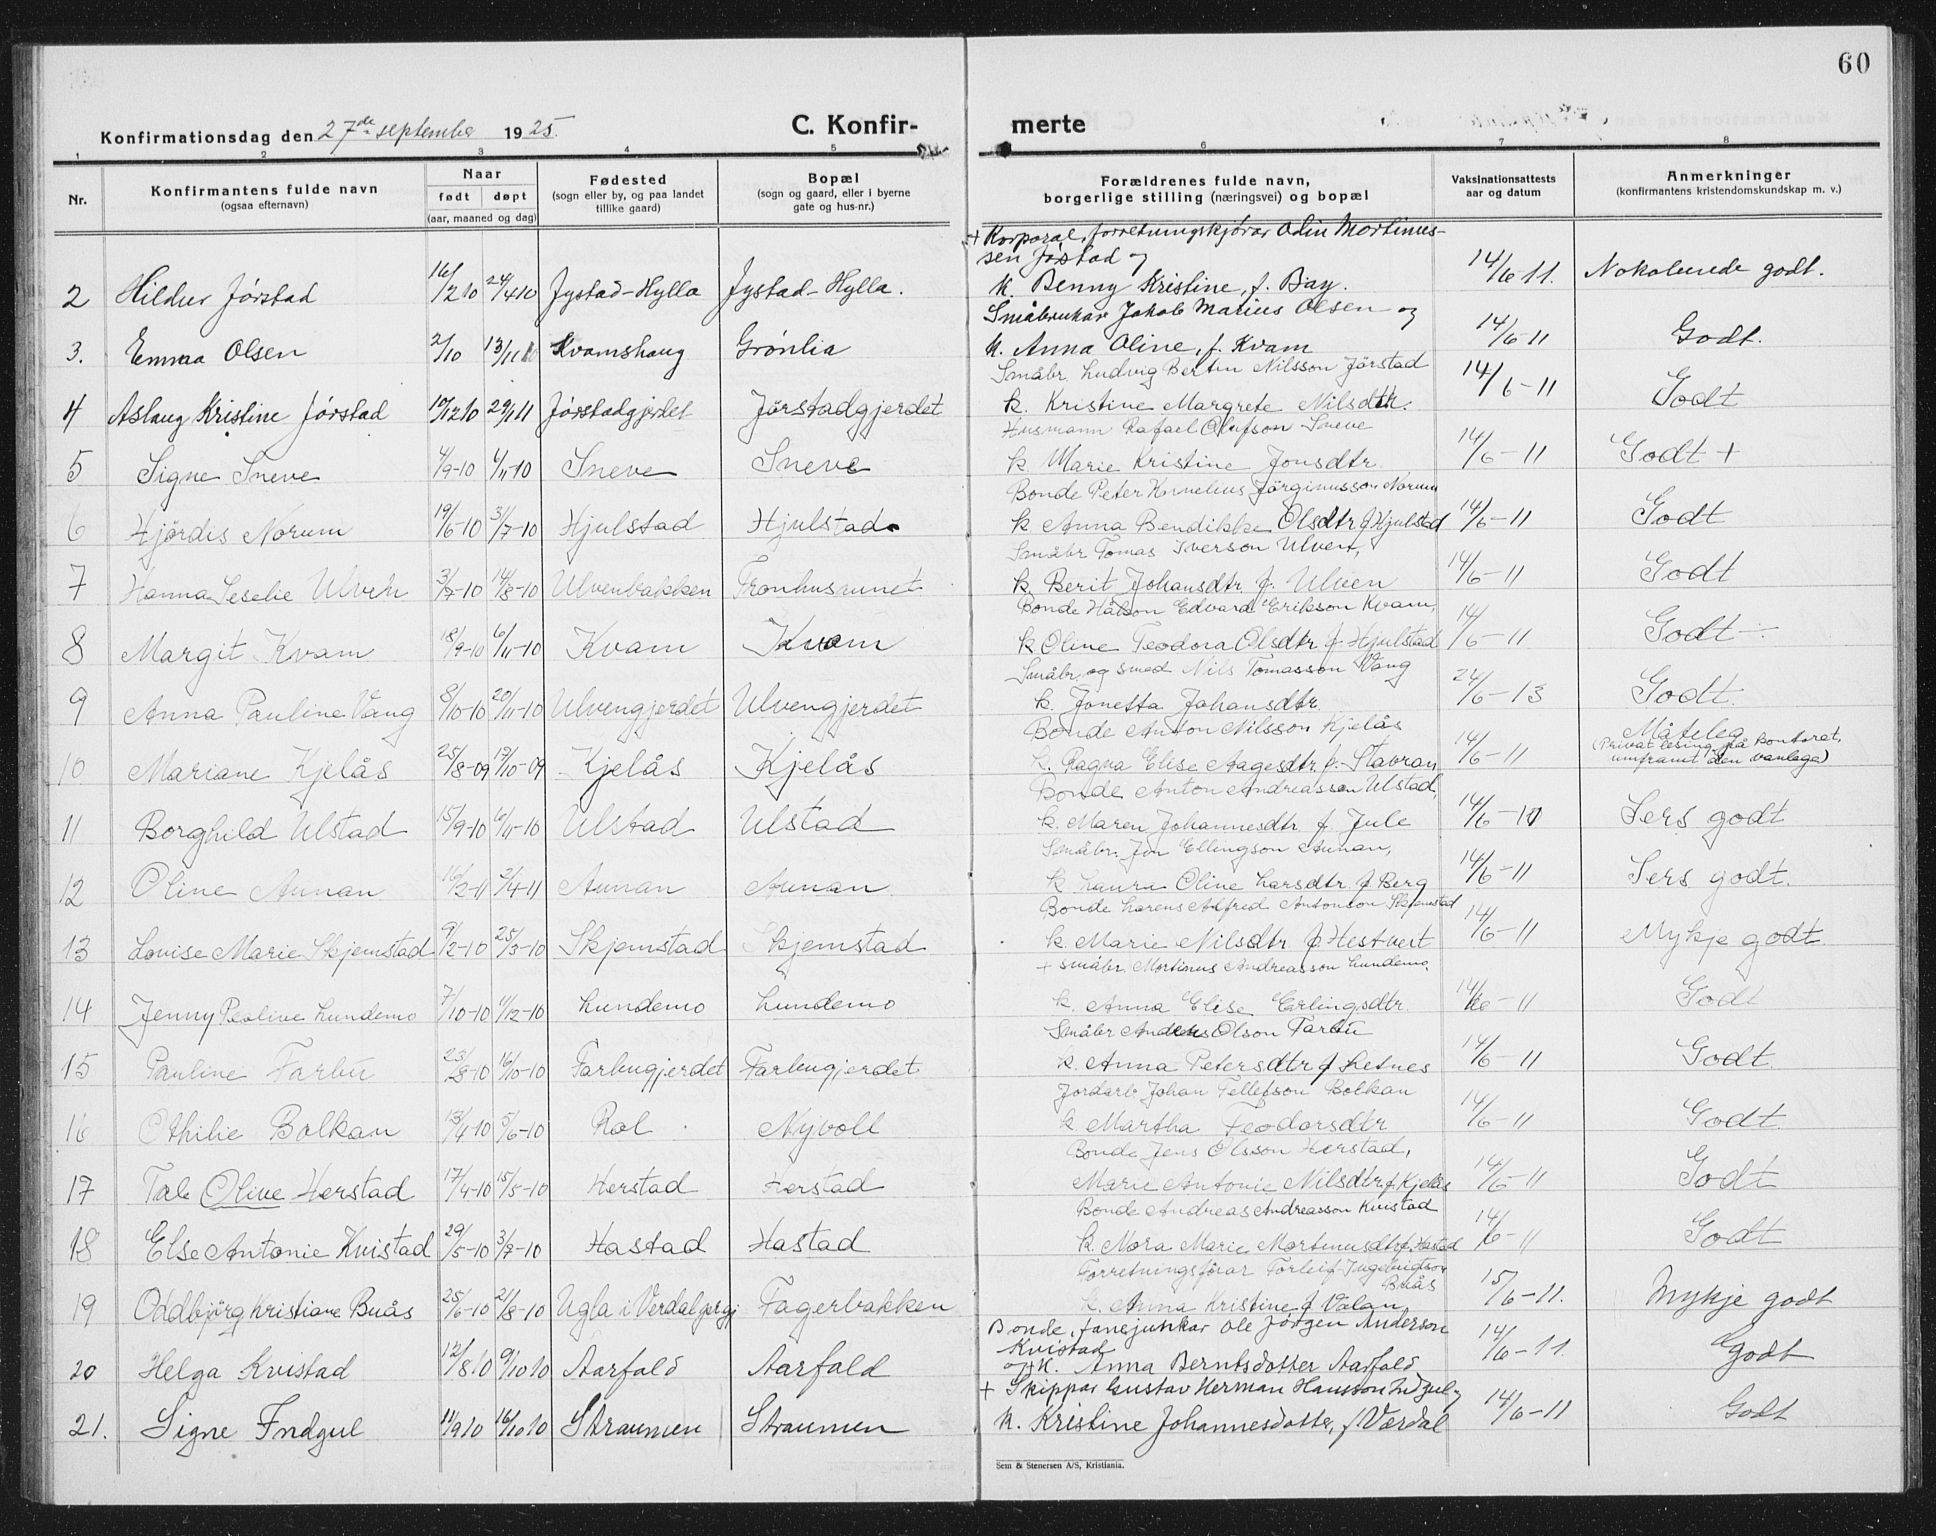 60
Konfirmationsdag den 27de september 1925.
C. Konfirmerte
1 2 3 4 5 6 7 8
Nr.
Konfirmantens fulde navn
(ogsaa efternavn)
Naar
født døpt
(aar, maaned og dag)
Fødested
(sogn eller by, og paa landet
tillike gaard)
Bopæl
(sogn og gaard, eller i byerne
gate og hus-nr.)
Forældrenes fulde navn,
borgerlige stilling (næringsvei) og bopæl
Vaksinationsattests
aar og datum
Anmerkninger
(konfirmantens kristendomskundskap m. v.)
+ Korporal, forretningskjörar Odin Mortinus-
sen Jöstad og
2 Hildur Jörstad 16/2 10 24/4 10 Jystad-Hylla Jystad-Hylla. k. Benny Kristine, f. Bay. 14/6 11. Nokolunde godt.
Småbrukar Jakob Marius Olsen og
3. Emma Olsen 2/10 13/11 Kvamshaug Grönlia k. Anna Oline, f. Kvam 14/6-11 Godt.
Småbr. Ludvig Bertin Nilsson Jörstad
4 Aslaug Kristine Jörstad 10/12 10 29/1 11 Jörstadgjerdet Jörstadgjerdet k. Kristine Margrete Nilsdtr. 14/6-11 Godt
Husmann Rafael Olufson Sneve
5 Signe Sneve 4/9-10 6/11 10 Sneve Sneve k. Marie Kristine Jonsdtr. 14/6-11 Godt +
Bonde Peter Kornelius Jörginusson Norum
6 Hjördis Norum 19/6-10 31/7-10 Hjulstad Hjulstad k Anna Bendikke Olsdtr f Hjulstad 14/6-11 Godt
Småbr Tomas Iverson Ulven,
7 Hanna Seselie Ulven 3/7-10 14/8-10 Ulvenbakken Tronhusrunet k. Berit Johansdtr. f. Ulven 14/6-11 Godt
Bonde Håkon Edvard Erikson Kvam,
8 Margit Kvam 18/9-10 6/11-10 Kvam Kvam k Oline Teodora Olsdtr f. Hjulstad 14/6-11 Godt ÷
Småbr. og smed Nils Tomasson Vang
9 Anna Pauline Vang 8/10-10 20/11-10 Ulvengjerdet Ulvengjerdet k. Jonetta Johansdtr. 24/6-13 Godt.
Bonde Anton Nilsson Kjelås
10 Mariane Kjelås 25/8-09 17/10-09 Kjelås Kjelås k. Ragna Elise Aagesdtr. f. Stavran 14/6-11 Måteleg
(Privat lesing på kontoret,
umframt den vanlege)
Bonde Anton Andreasson Ulstad,
11 Borghild Ulstad 15/9-10 6/11-10 Ulstad Ulstad k. Maren Johannesdtr f. Jule 14/6-11 Sers godt
Småbr. Jon Ellingson Aunan,
12 Oline Aunan 16/2-11 2/4-11 Aunan Aunan k Laura Oline Larsdtr. f. Berg 14/6-11 Sers godt.
Bonde Lorens Alfred Antonson Skjemstad
13 Lovise Marie Skjemstad 9/2-10 25/3-10 Skjemstad Skjemstad k. Marie Nilsdtr f Hestvert 14/6-11 Mykje godt.
+ småbr. Mortinus Andreasson Lundemo.
14 Jenny Peoline Lundemo 7/10-10 11/12-10 Lundemo Lundemo k. Anna Elise Erlingsdtr. 14/6-11 Godt
Småbr Anders Olson Farbu
15 Pauline Farbu 23/8-10 16/10-10 Farbugjerdet Farbugjerdet k. Anna Petersdtr f Letnes 14/6-11 Godt.
Jordarb. Johan Tellefson Bolkan
16 Othilie Bolkan 13/4-10 5/6-10 Rol Nyvoll k Martha Teodorsdtr 14/6-11 Godt.
Bonde Jens Olsson Herstad,
17 Tale Olive Herstad 17/4-10 15/5-10 Herstad Herstad Marie Antonie Nilsdtr f Kjelås 14/6-11 Godt
Bonde Andreas Andreasson Kvistad
18 Else Antonie Kvistad 29/5-10 3/7-10 Hastad Hastad k. Nora Marie Mortinusdtr f. Hastad 14/6-11 Godt
Forretningsförar Torleif Ingebrigtson
Buås
19 Oddbjörg Kristiane Buås 25/6-10 21/8-10 Ugla i Verdal Fagerbakken k. Anna Kristine f Valan 15/6-11. Mykje godt
Bonde, fanejunkar Ole Jörgen Anderson
Kvistad
20 Helga Kvistad 12/8 10 9/10 10 Aarfald Aarfald og k. Anna Berntsdotter Aarfald 14/6-11 Godt
+ Skippar Gustav Herman Hansson Indgul og
21. Signe Indgul 11/9 10 16/10 10 Straumen Straumen k. Kristine Johannesdotter, f Værdal 14/6-11 Godt
Sem & Stenersen A/S, Kristiania.